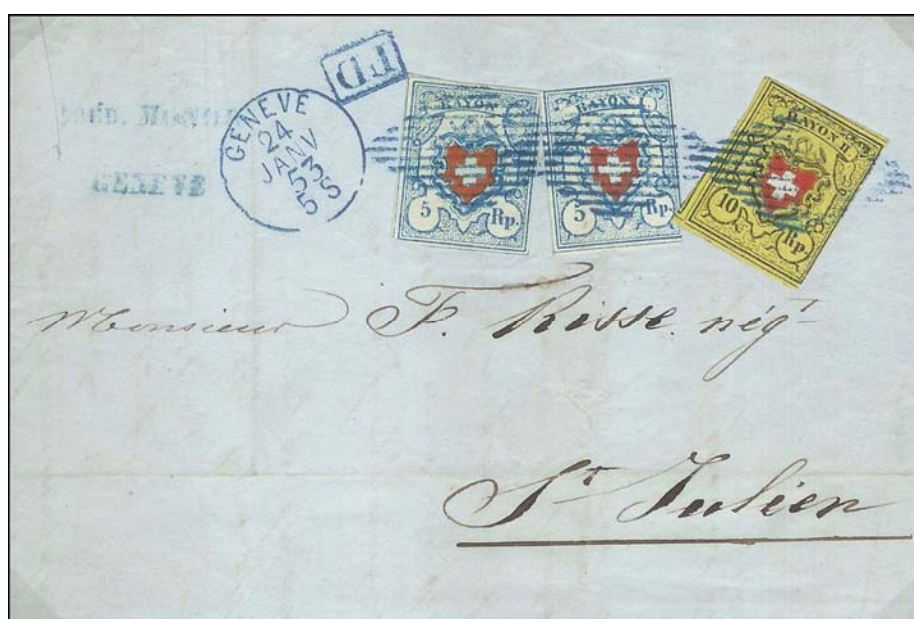 PD
GENEVE
24
JANV
53
5 S
GENEVE
RAYON I
5 Rp.
RAYON I
5 Rp.
RAYON II
10 Rp.
Monsieur F. Risse négt
St Julien